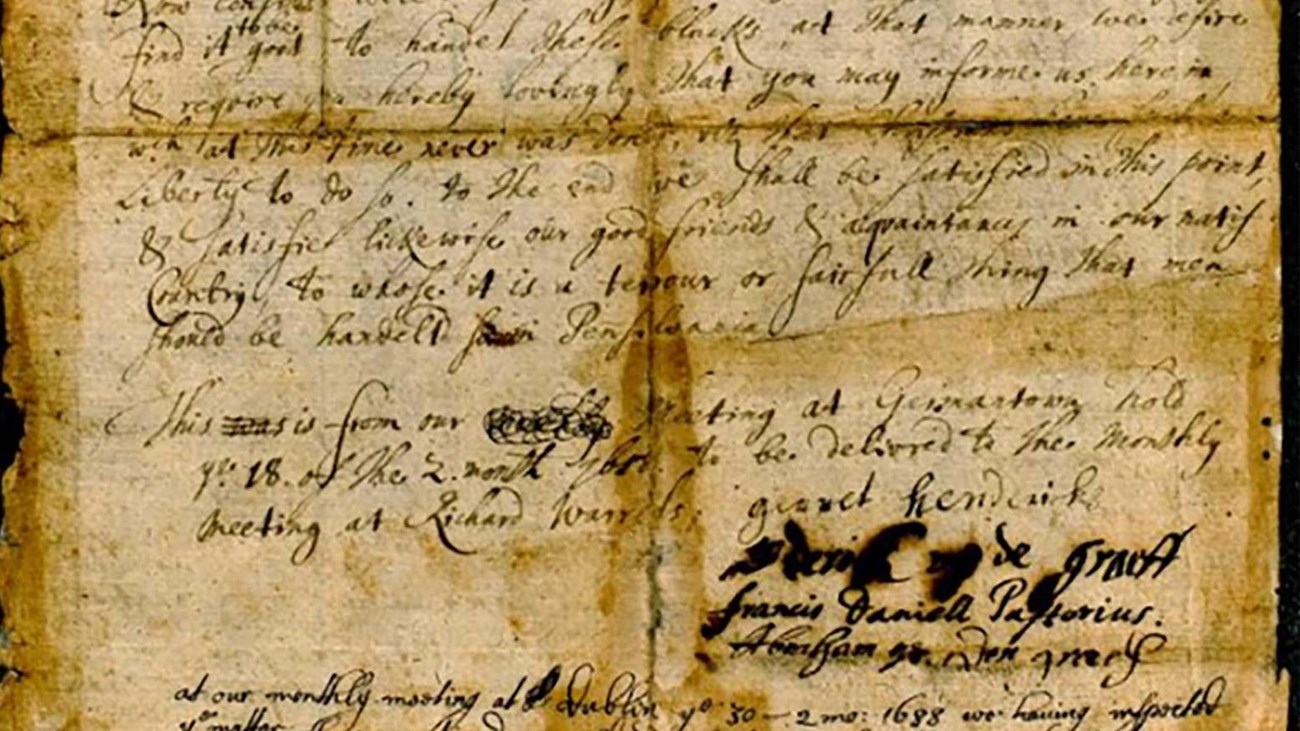 Now consider
find it to be good to handel these blacks at that manner, we desire
& require you hereby lovingly that you may informe us herein
wch at this time never was done, viz that
Liberty to do so. to the end we shall be satisfied in this point,
& satisfie lickewise our good friends & acquaintances in our natif
Country, to whose it is a terrour or fairfull thing that men
should be handeld so in Pensilvania
This was is from our Meeting at Germantown hold
ye 18. of the 2. month 1688. to be delivred to the Monthly
Meeting at Richard Warrels;
gerret hendericks
derick op de graeff
Francis Daniell Pastorius.
Abraham op den graef
at our monthly meeting at Dublin ye 30 – 2 mo: 1688 we having inspected
ye matter